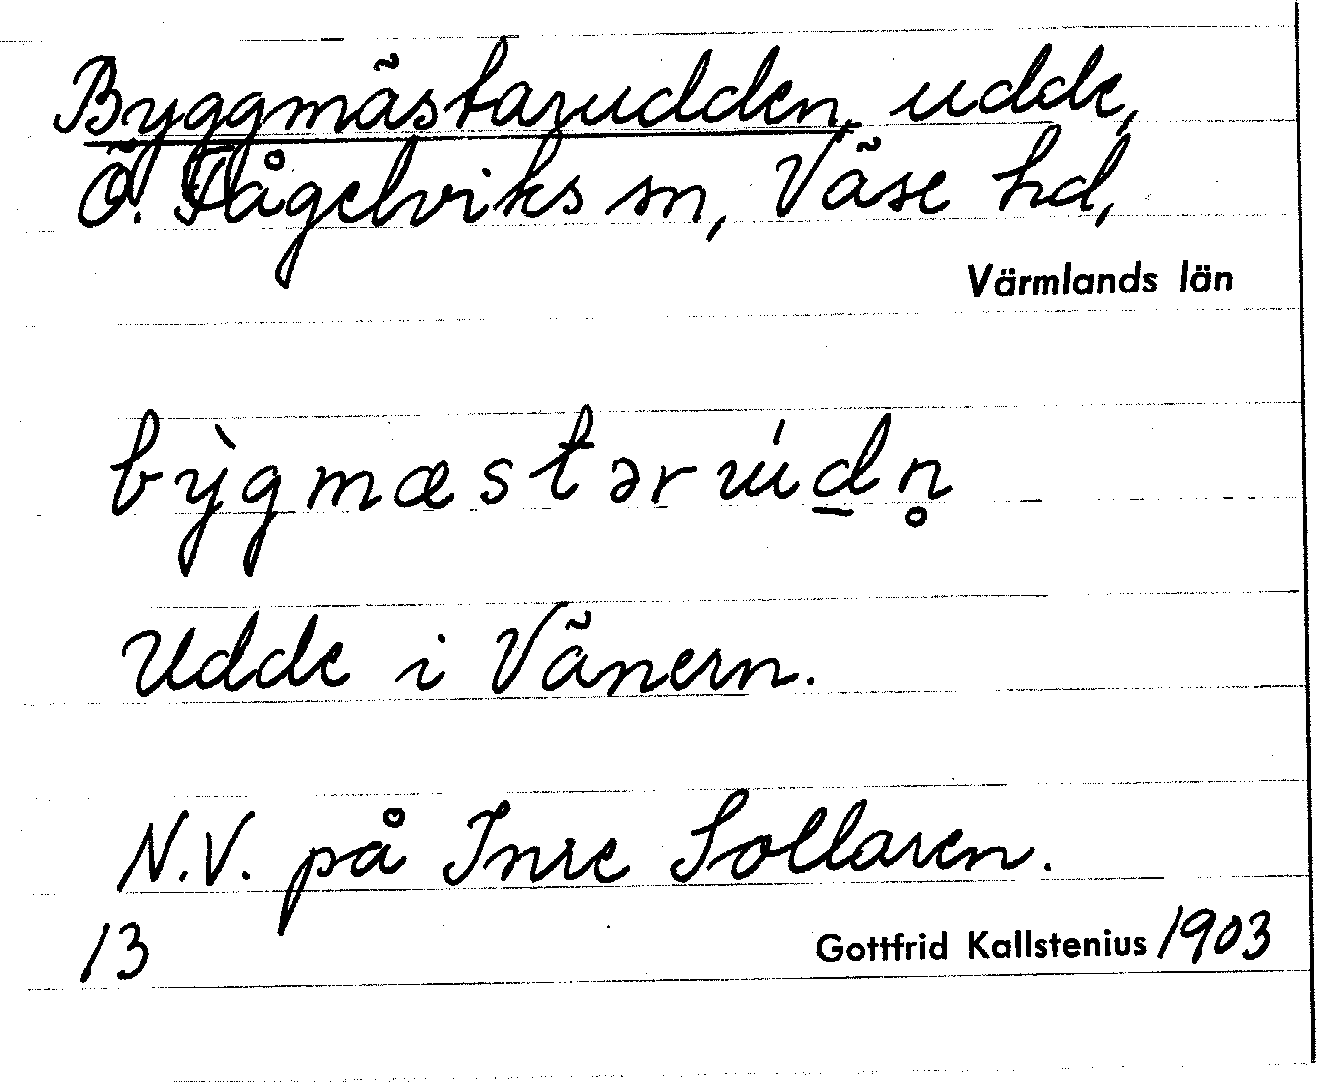 Byggmästarudden, udde,
Ö. Fågelviks sn, Väse hd,
Värmlands län
bỳgmæstərúd̲n̥
Udde i Vänern.
N.V. på Inre Sollaren.
13
Gottfrid Kallstenius 1903